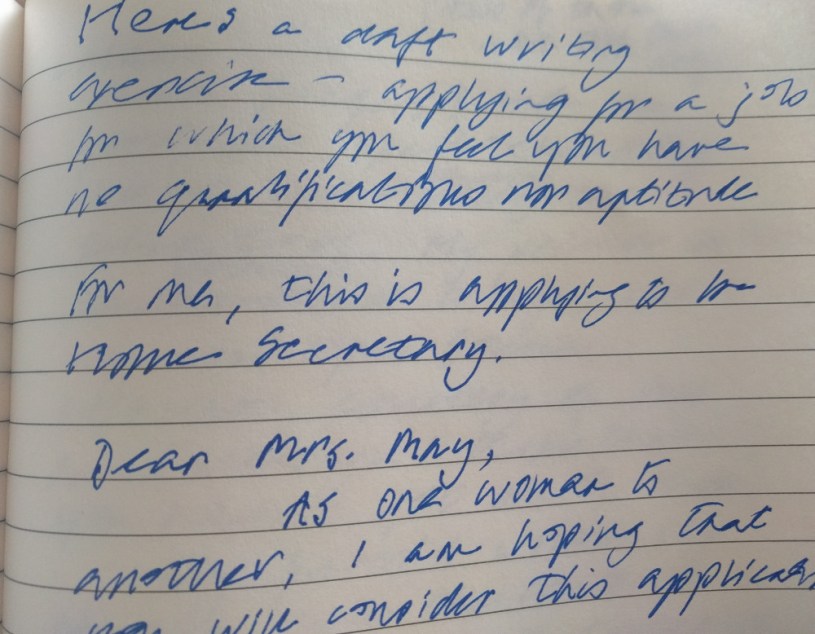 Here's a daft writing
exercise - applying for a job
for which you feel you have
no qualifications nor aptitude
For me, this is applying to be
Home Secretary.
Dear Mrs. May,
As one woman to
another, I am hoping that
you will consider this applicati